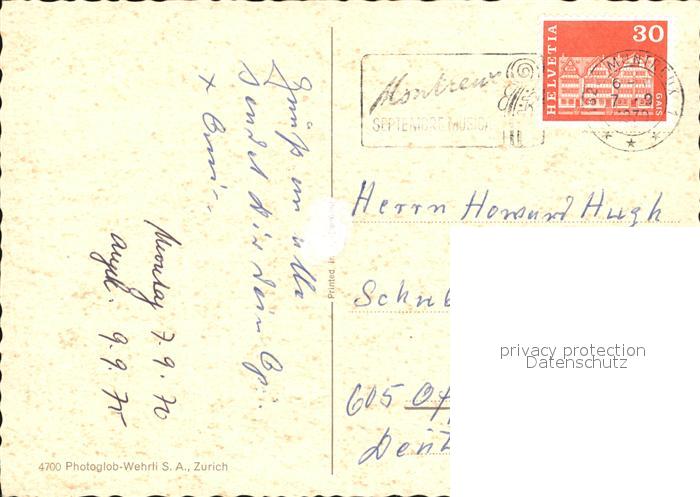 HELVETIA
30
GAIS
Montreux
SEPTEMBRE MUSICAL
6
7 9
1
Gruß an alle
sendet Dir Dein
x
Montag 7.9.70
9.9.70
Herrn Howard Hugh
Schub
605 Of
Deut
Printed in
4700 Photoglob-Wehrli S. A., Zurich
privacy protection
Datenschutz